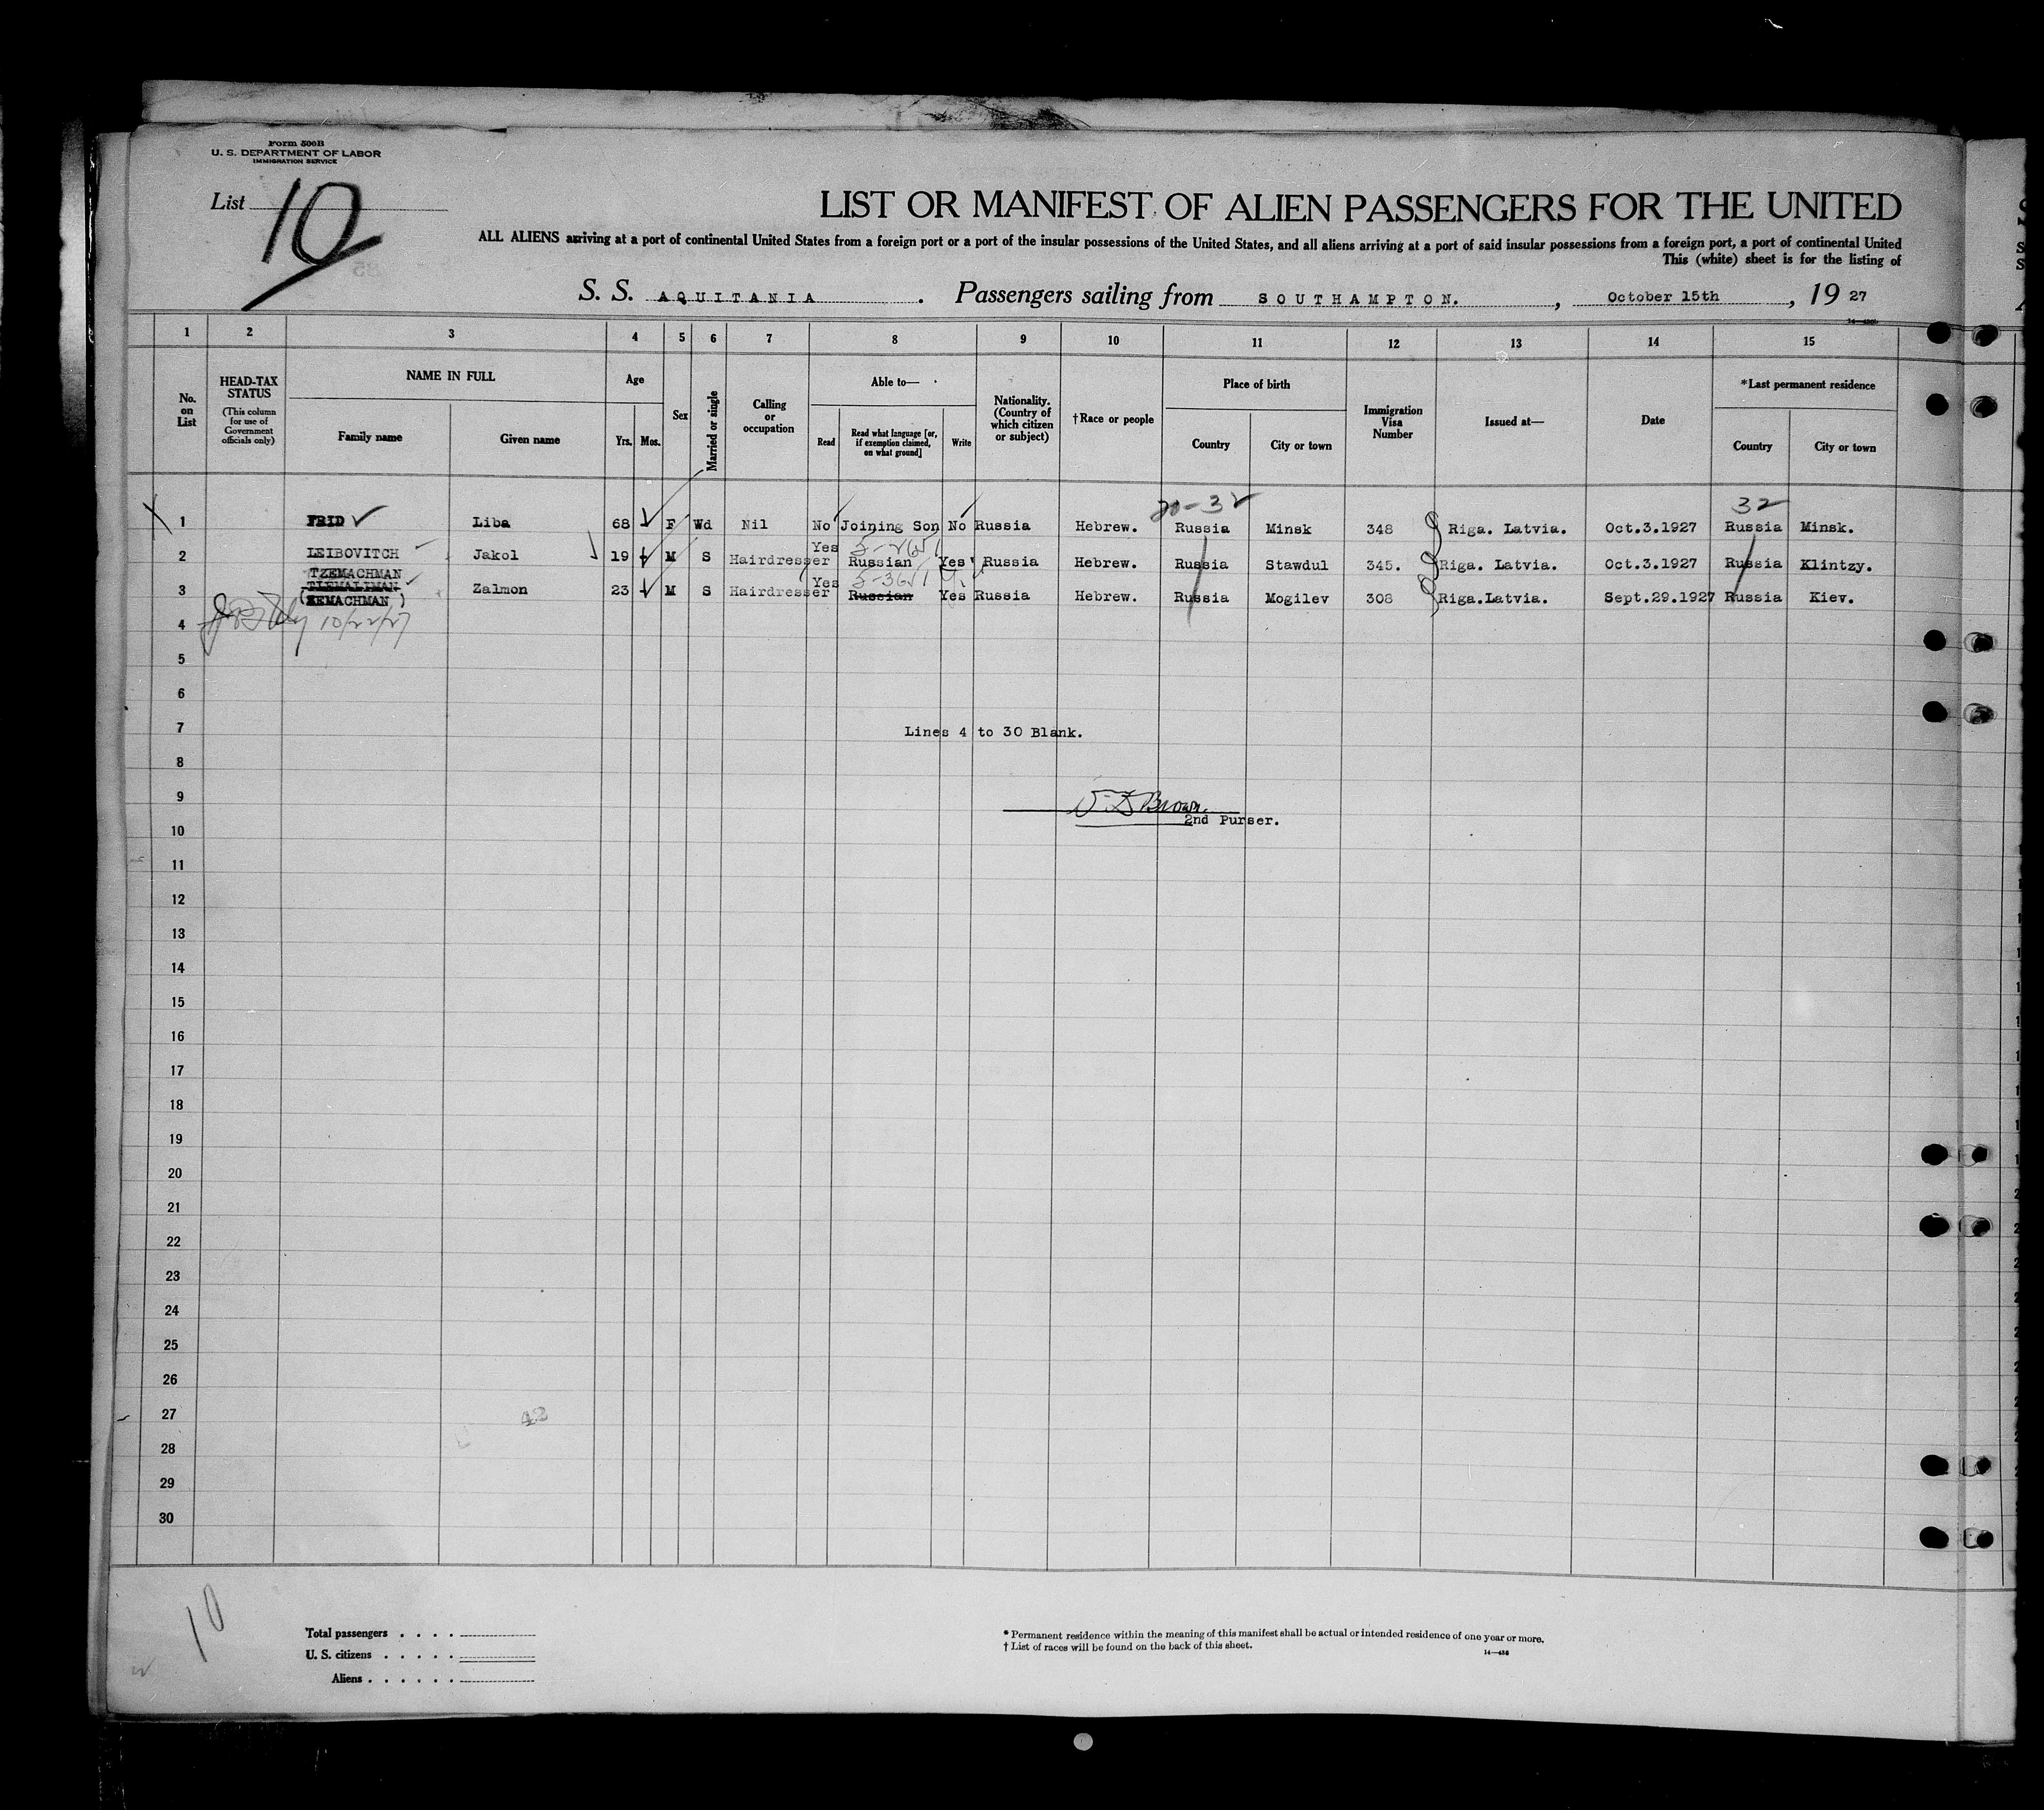 Form 500B
U. S. DEPARTMENT OF LABOR
IMMIGRATION SERVICE
List 10
LIST OR MANIFEST OF ALIEN PASSENGERS FOR THE UNITED
ALL ALIENS arriving at a port of continental United States from a foreign port or a port of the insular possessions of the United States, and all aliens arriving at a port of said insular possessions from a foreign port, a port of continental United
This (white) sheet is for the listing of
S. S. AQUITANIA. Passengers sailing from SOUTHAMPTON., October 15th, 19 27
1 2 3 4 5 6 7 8 9 10 11 12 13 14 15
No. on List
HEAD-TAX STATUS (This column for use of Government officials only)
NAME IN FULL
Family name Given name
Age
Yrs. Mos.
Sex
Married or single
Calling or occupation
Able to—
Read
Read what language [or, if exemption claimed, on what ground]
Write
Nationality. (Country of which citizen or subject)
†Race or people
Place of birth
Country City or town
Immigration Visa Number
Issued at—
Date
*Last permanent residence
Country City or town
20-32 32
1 FRID Liba 68 F Wd Nil No Joining Son No Russia Hebrew. Russia Minsk 348 Riga. Latvia. Oct.3.1927 Russia Minsk.
2 LEIBOVITCH Jakol 19 M S Hairdresser Yes Russian Yes Russia Hebrew. Russia Stawdul 345. Riga. Latvia. Oct.3.1927 Russia Klintzy.
TZEMACHMAN
3 TLEMALIMAN Zalmon 23 M S Hairdresser Yes Russian Yes Russia Hebrew. Russia Mogilev 308 Riga.Latvia. Sept.29.1927 Russia Kiev.
(ZEMACHMAN)
4 10/22/27
5
6
7 Lines 4 to 30 Blank.
8
9 Brown.
2nd Purser.
10
11
12
13
14
15
16
17
18
19
20
21
22
23
24
25
26
27 42
28
29
30
10
Total passengers . . . .
U. S. citizens . . . . .
Aliens . . . . . .
* Permanent residence within the meaning of this manifest shall be actual or intended residence of one year or more.
† List of races will be found on the back of this sheet.